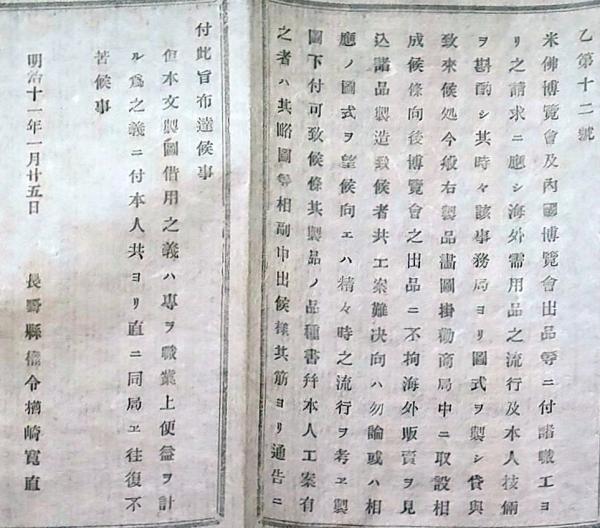 乙第十二號
米佛博覽會及內國博覽會出品等ニ付諸職工ヨ
リ之請求ニ應シ海外需用品之流行及本人技倆
ヲ斟酌シ其時々該事務局ヨリ圖式ヲ製シ貸與
致來候処今般右製品畫圖掛勸商局中ニ取設相
成候條向後博覽會之出品ニ不拘海外販賣ヲ見
込諸品製造致候者共工案難决向ハ勿論或ハ相
應ノ圖式ヲ望候向エハ精々時之流行ヲ考ヱ製
圖下付可致候條其製品ノ品種書幷本人工案有
之者ハ其略圖等相副申出候樣其筋ヨリ通告ニ
付此旨布達候事
但本文製圖借用之義ハ專ヲ職業上便益ヲ計
ル爲之義ニ付本人共ヨリ直ニ同局ヱ往復不
苦候事
明治十一年一月廿五日
長野縣權令楢崎寬直